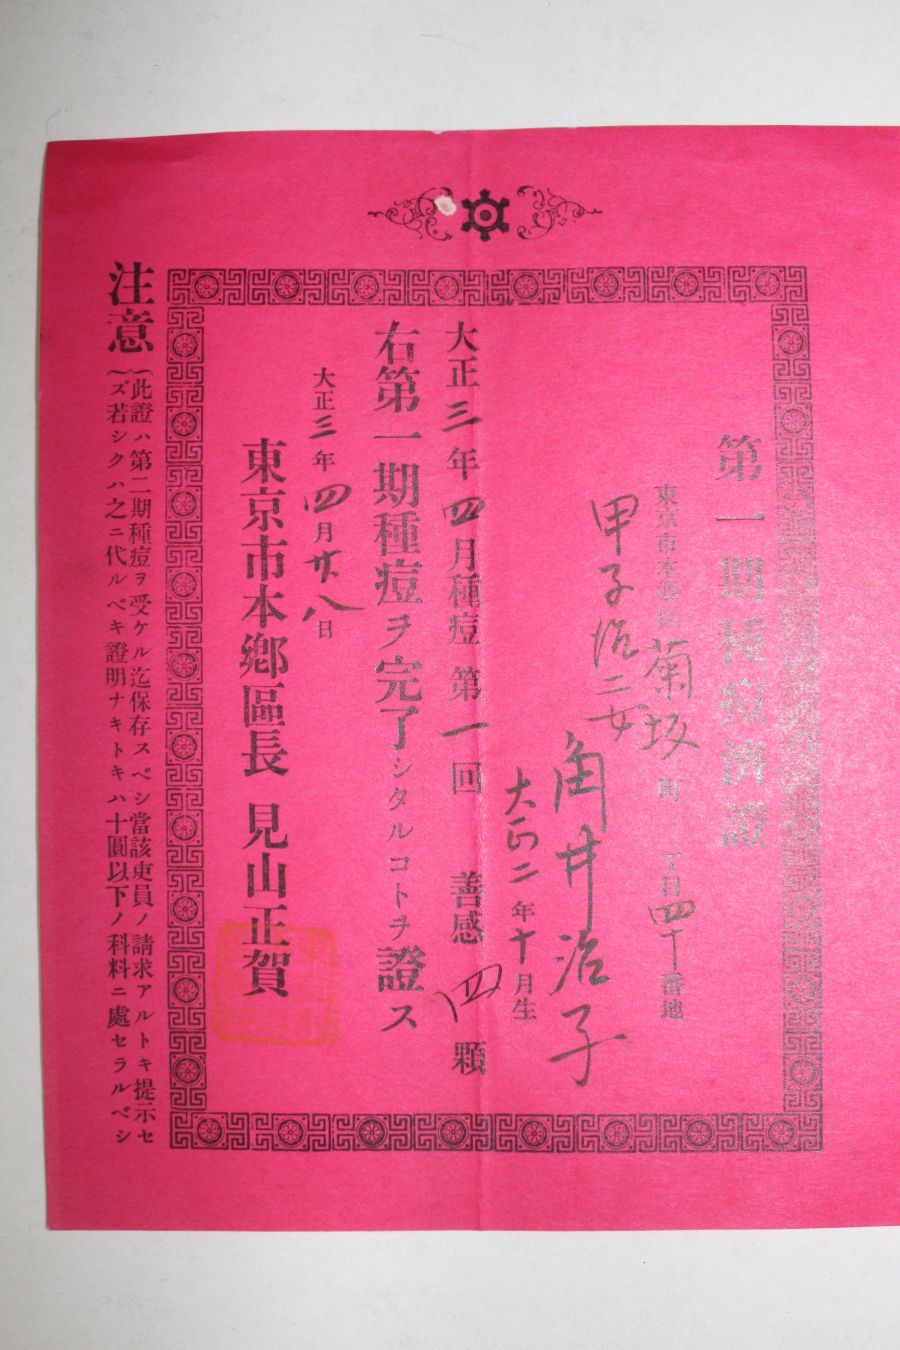 第一期種痘濟證
東京市本鄉區菊坂町 丁目四十番地
甲子治二女
角井治子
大正二年十月生
大正三年四月種痘 第一回 善感四顆
右第一期種痘ヲ完了シタルコトヲ證ス
大正三年四月廿八日
東京市本鄉區長 見山正賀
注意
此證ハ第二期種痘ヲ受ケル迄保存スベシ當該吏員ノ請求アルトキ提示セ
ズ若シクハ之ニ代ルベキ證明ナキトキハ十圓以下ノ科料ニ處セラルベシ